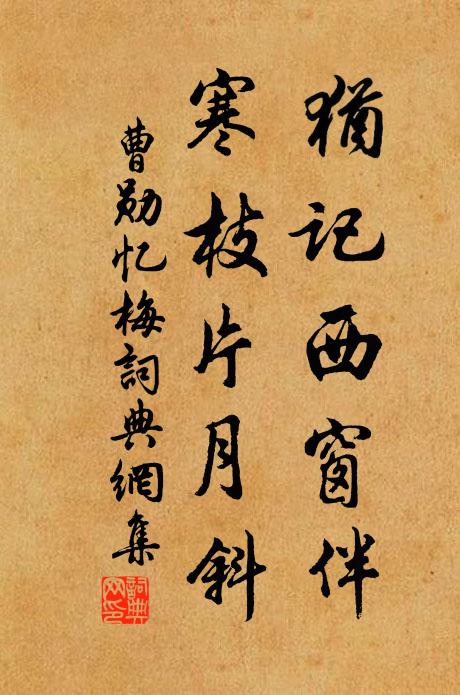 猶記西窗伴
寒枝片月斜
曹勛忆梅詞典網集
詞典网印